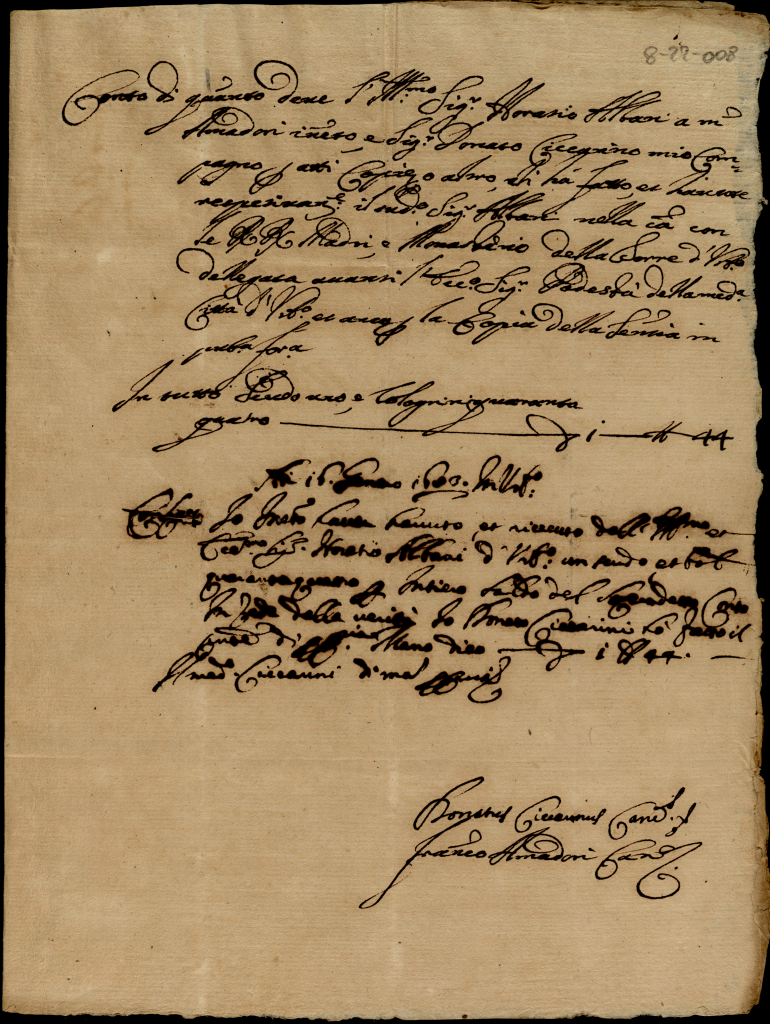 8-22-008
Conto di quanto deve l'Ill.mo Sig.r Horatio Albani a me
Amadori et Sig.r Donato Ciccarino mio Com=
pagno p atti Copie, o altro, ha fatto, et
il sud.o Sig.r Albani nella ca con
le RR Madri, e Monasterio della Torre d'Urb.o
dellegata avanti l'Ecc.o Sig.r Podestà della med.a
Città d'Urb.o et anco p la Copia della Sentia in
pub.a for.a
In tutto Scudo uno, e bolognini quaranta
quatro 1 44
Adi 16. Genaro In Urb.o
Io havere havuto, et riceuto dall' Ill.mo et
Sig.r Horatio Albani d'Urb.o un scudo et bol
quarantaquatro p Intiero saldo del Conto
In fede della verità Io Donato Ciccarini hò fatto il
di mano dico 1 44.
Ciccarini di ma
Donatus Ciccarinus Canc.s
Franc.o Amadori Canc.